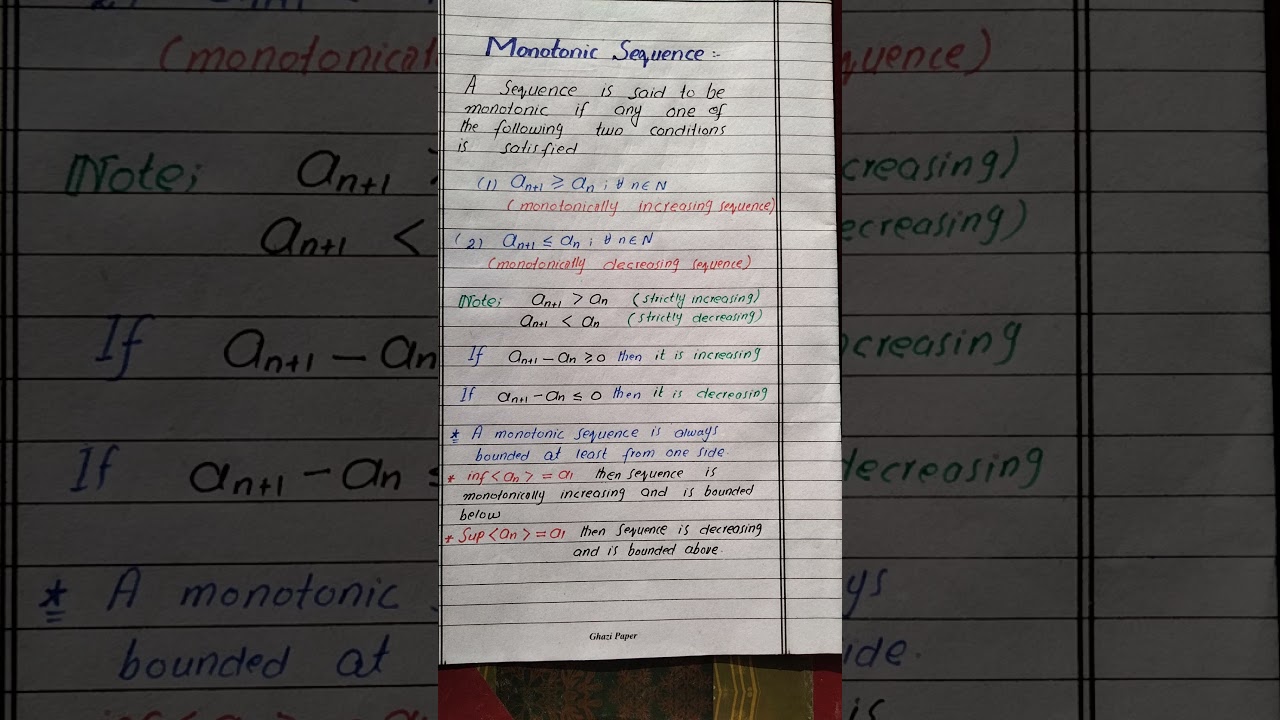 Monotonic Sequence :-
A sequence is said to be
monotonic if any one of
the following two conditions
is satisfied
(1) an+1 ≥ an ; ∀ n∈N
(monotonically increasing sequence)
(2) an+1 ≤ an ; ∀ n∈N
(monotonically decreasing sequence)
Note; an+1 > an (strictly increasing)
an+1 < an (strictly decreasing)
If an+1 - an ≥ 0 then it is increasing
If an+1 - an ≤ 0 then it is decreasing
* A monotonic sequence is always
bounded at least from one side.
* inf<an> = a1 then sequence is
monotonically increasing and is bounded
below
* Sup<an> = a1 then sequence is decreasing
and is bounded above.
Ghazi Paper
(monotonical
quence)
Note; an+1
creasing)
an+1 <
ecreasing)
If an+1 - an
creasing
If an+1 - an
decreasing
* A monotonic
ys
bounded at
ide.
is